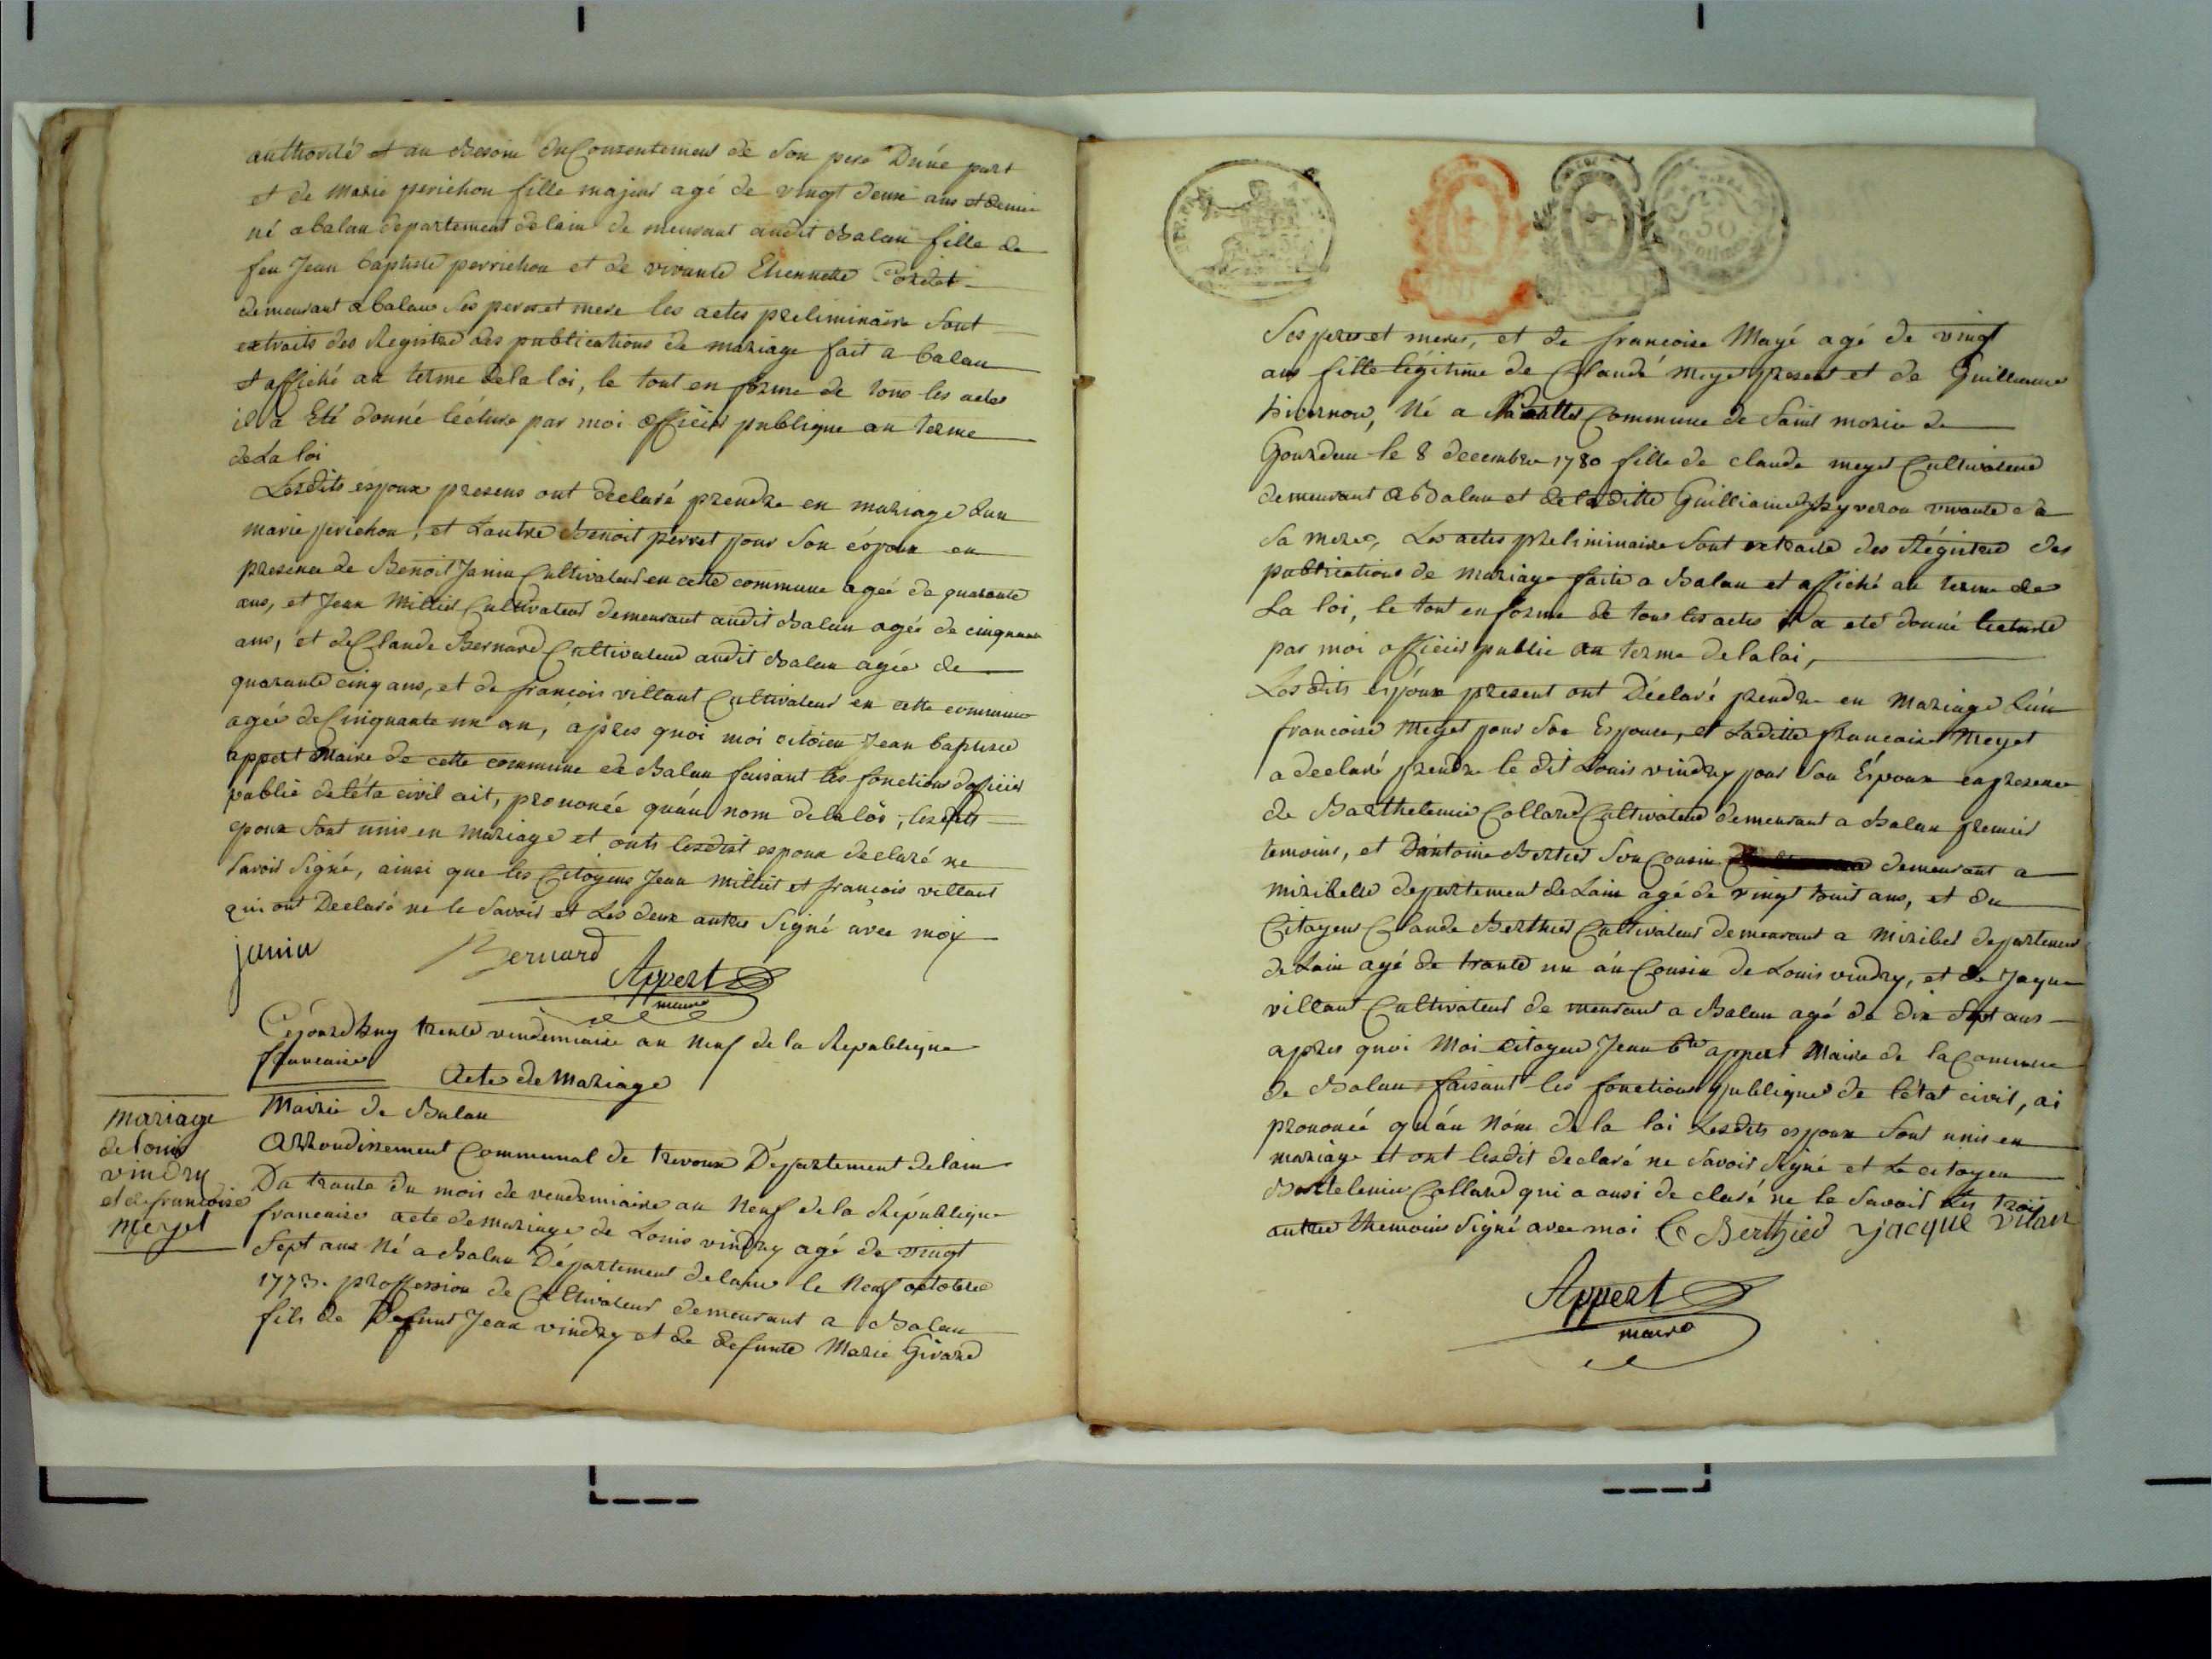 authorité et au Besoin du Consentement de Son pere Dune part
et de Marie perichon fille majeur agé de vingt deux ans et demie
né a balan departement de lain de meurant audit Balan fille de
feu Jean baptiste perrichon et de vivante Etiennette
demeurant a balan Ses peres et mere les actes preliminaire Sont
extraits des Registre des publications de mariage fait a balan
et affiché au terme de la loi, le tout en forme de tous les actes
il a Eté donné lécture par moi officier publique au terme
de La loi
Lesdits époux presens ont declaré prendre en mariage Lun
marie perichon, et Lautre Benoit perret pour Son époux en
presence de Benoit Janin Cultivateur en cette commune agée de quarante
ans, et Jean Millier Cultivateur demeurant audit Balan agée de cinquante
ans, et de Claude Bernard Cultivateur audit Balan agée de
quarante cinq ans, et de francois villant Cultivateur en cette commune
agée de Cinquante un an, apres quoi moi citoien Jean baptiste
appert Maire de cette commune de Balan faisant les fonctions dofficier
public de léta civil ait, prononcée quáu nom de la loi, lesdits
epoux Sont unis en mariage et onts lesdist espoux declaré ne
Savoir Signé, ainsi que les Citoyens Jean Millier et francois villant
qui ont Declaré ne le Savoir et Les deux autres Signé avec moy
janin Bernard
Appert
maire
Cejourdhuy trente vendemiaire an Neuf de la Republique
francaise
Acte de Mariage
Mariage
de louis
vindry
et de francoise
Meyet
Mairie de Balan
Arrondissement Communal de trevoux Département de lain
Du trante du mois de vendemiaire an Neuf de la République
francaise acte de mariage de Louis vindry agé de vingt
Sept ans Né a Balan Département de lain le Neuf octobre
1773. proffession de Cultivateur demeurant a Balan
fils de Defunt Jean vindry et de defunte Marie Girard
Ses peres et meres, et de francoise Mayé agé de vingt
ans fille légitime de Claude meyet present et de Guillianne
Né a Commune de Saint morice de
Gourdan le 8 decembre 1780 fille de claude meyet Cultivateur
demeurant a Balan et de laditte vivante
Sa mere, Les actes preliminaire Sont extraite des Régistre des
publications de Mariage faite a Balan et affiché au terme de
La loi, le tout en forme de tous les actes il a eté donné lecture
par moi officier public au terme de la loi,
Lesdits époux present ont Déclaré prendre en Mariage Lún
francoise Meyet pour Son Espouse, et Laditte francoise Meyet
a declaré prendre le dit Louis vindry pour Son Époux en presence
de Barthelemie Collard Cultivateur demeurant a Balan premier
temoins, et Dántoine Bertier Son Cousin demeurant a
miribelle departement de Lain agé de vingt huit ans, et du
Citoyens Claude Berthier Cultivateur demeurant a Miribel departement
de Lain agé de trante un án Cousin de Louis vindry, et de Jaque
villant Cultivateur de meurant a Balan agé de dix Sept ans
apres quoi Moi citoyen Jean bte appert Maire de la Commune
de Balan faisant les fonctions publiques de létat civil, ai
prononcé quáu Nom de la loi Lesdits espoux Sont unis en
mariage et ont lesdit declaré ne Savoir Signé et Le citoyen
Collard qui a ausi de claré ne le Savoir Les trois
autre themoins Signé avec moi C Berthier yacque vilan
Appert
maire